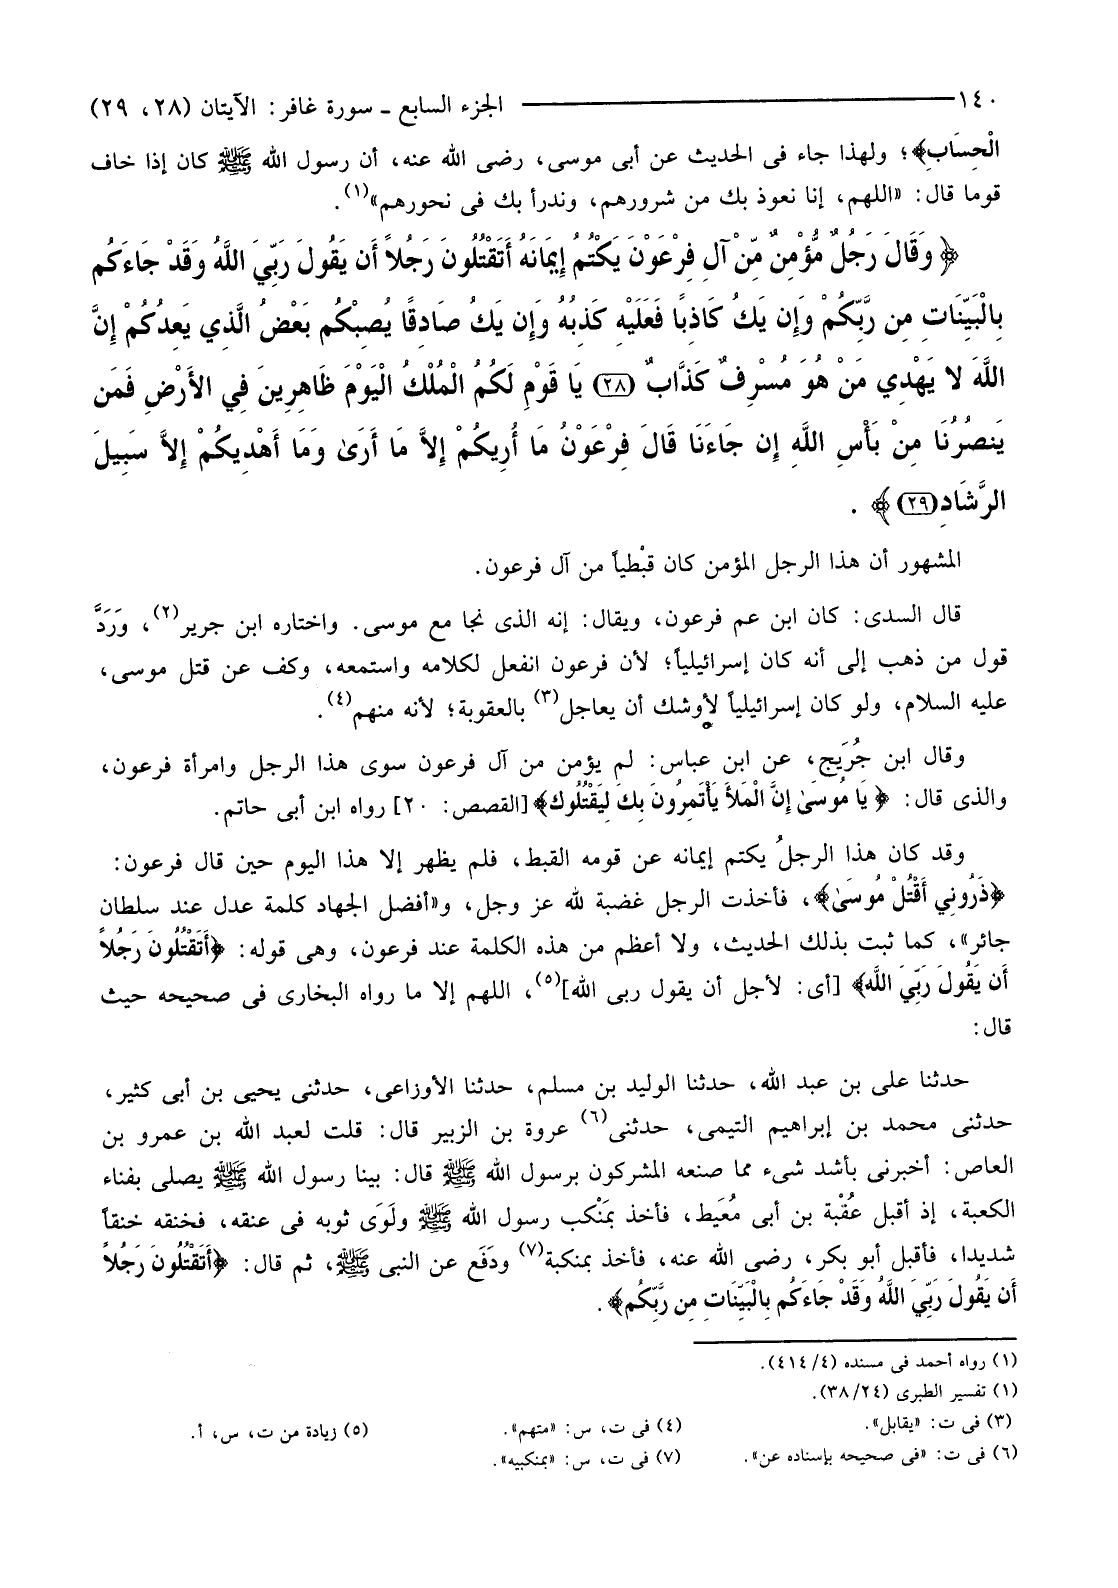 ١٤٠ ــــــــــــــــ الجزء السابع ـ سورة غافر: الآيتان (٢٨، ٢٩)
الْحِسَابِ﴾؛ ولهذا جاء فى الحديث عن أبى موسى، رضى الله عنه، أن رسول الله ﷺ كان إذا خاف
قوما قال: «اللهم، إنا نعوذ بك من شرورهم، وندرأ بك فى نحورهم»(١).
﴿وَقَالَ رَجُلٌ مُّؤْمِنٌ مِّنْ آلِ فِرْعَوْنَ يَكْتُمُ إِيمَانَهُ أَتَقْتُلُونَ رَجُلاً أَن يَقُولَ رَبِّيَ اللَّهُ وَقَدْ جَاءَكُم
بِالْبَيِّنَاتِ مِن رَّبِّكُمْ وَإِن يَكُ كَاذِبًا فَعَلَيْهِ كَذِبُهُ وَإِن يَكُ صَادِقًا يُصِبْكُم بَعْضُ الَّذِي يَعِدُكُمْ إِنَّ
اللَّهَ لا يَهْدِي مَنْ هُوَ مُسْرِفٌ كَذَّابٌ (٢٨) يَا قَوْمِ لَكُمُ الْمُلْكُ الْيَوْمَ ظَاهِرِينَ فِي الأَرْضِ فَمَن
يَنصُرُنَا مِنْ بَأْسِ اللَّهِ إِن جَاءَنَا قَالَ فِرْعَوْنُ مَا أُرِيكُمْ إِلاَّ مَا أَرَىٰ وَمَا أَهْدِيكُمْ إِلاَّ سَبِيلَ
الرَّشَادِ(٢٩)﴾ .
المشهور أن هذا الرجل المؤمن كان قبْطياً من آل فرعون.
قال السدى: كان ابن عم فرعون، ويقال: إنه الذى نجا مع موسى. واختاره ابن جرير(٢)، ورَدَّ
قول من ذهب إلى أنه كان إسرائيلياً؛ لأن فرعون انفعل لكلامه واستمعه، وكف عن قتل موسى،
عليه السلام، ولو كان إسرائيلياً لأوشك أن يعاجل(٣) بالعقوبة؛ لأنه منهم(٤).
وقال ابن جُرَيج، عن ابن عباس: لم يؤمن من آل فرعون سوى هذا الرجل وامرأة فرعون،
والذى قال: ﴿يَا مُوسَىٰ إِنَّ الْمَلأَ يَأْتَمِرُونَ بِكَ لِيَقْتُلُوكَ﴾ [القصص: ٢٠] رواه ابن أبى حاتم.
وقد كان هذا الرجلُ يكتم إيمانه عن قومه القبط، فلم يظهر إلا هذا اليوم حين قال فرعون:
﴿ذَرُونِي أَقْتُلْ مُوسَىٰ﴾، فأخذت الرجل غضبة لله عز وجل، و«أفضل الجهاد كلمة عدل عند سلطان
جائر»، كما ثبت بذلك الحديث، ولا أعظم من هذه الكلمة عند فرعون، وهى قوله: ﴿أَتَقْتُلُونَ رَجُلاً
أَن يَقُولَ رَبِّيَ اللَّه﴾ [أى: لأجل أن يقول ربى الله](٥)، اللهم إلا ما رواه البخارى فى صحيحه حيث
قال:
حدثنا على بن عبد الله، حدثنا الوليد بن مسلم، حدثنا الأوزاعى، حدثنى يحيى بن أبى كثير،
حدثنى محمد بن إبراهيم التيمى، حدثنى(٦) عروة بن الزبير قال: قلت لعبد الله بن عمرو بن
العاص: أخبرنى بأشد شىء مما صنعه المشركون برسول الله ﷺ قال: بينا رسول الله ﷺ يصلى بفناء
الكعبة، إذ أقبل عُقْبة بن أبى مُعَيط، فأخذ بمَنْكب رسول الله ﷺ ولَوَى ثوبه فى عنقه، فخنقه خنقاً
شديدا، فأقبل أبو بكر، رضى الله عنه، فأخذ بمنكبة(٧) ودَفَع عن النبى ﷺ، ثم قال: ﴿أَتَقْتُلُونَ رَجُلاً
أَن يَقُولَ رَبِّيَ اللَّهُ وَقَدْ جَاءَكُم بِالْبَيِّنَاتِ مِن رَّبِّكُم﴾.
(١) رواه أحمد فى مسنده (٤١٤/٤).
(١) تفسير الطبرى (٣٨/٢٤).
(٣) فى ت: «يقابل». (٤) فى ت، س: «متهم». (٥) زيادة من ت، س، أ.
(٦) فى ت: «فى صحيحه بإسناده عن». (٧) فى ت، س: «بمنكبيه».